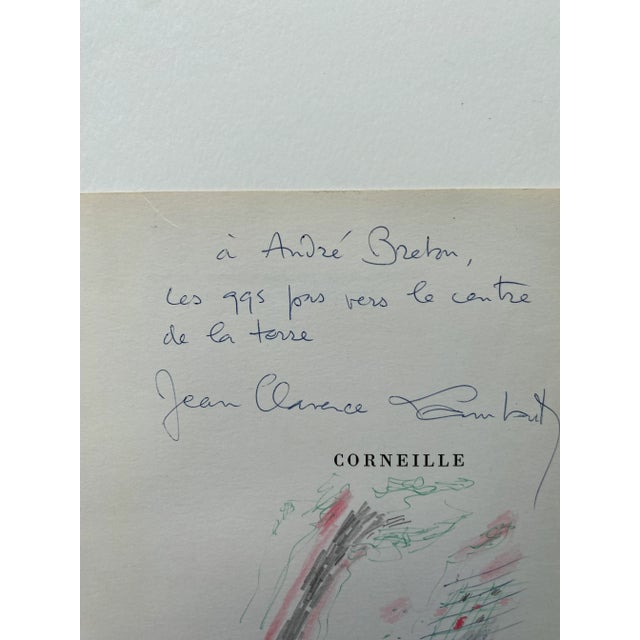 à André Breton,
ces 995 pas vers le centre
de la terre
Jean Clarence Lambert
CORNEILLE